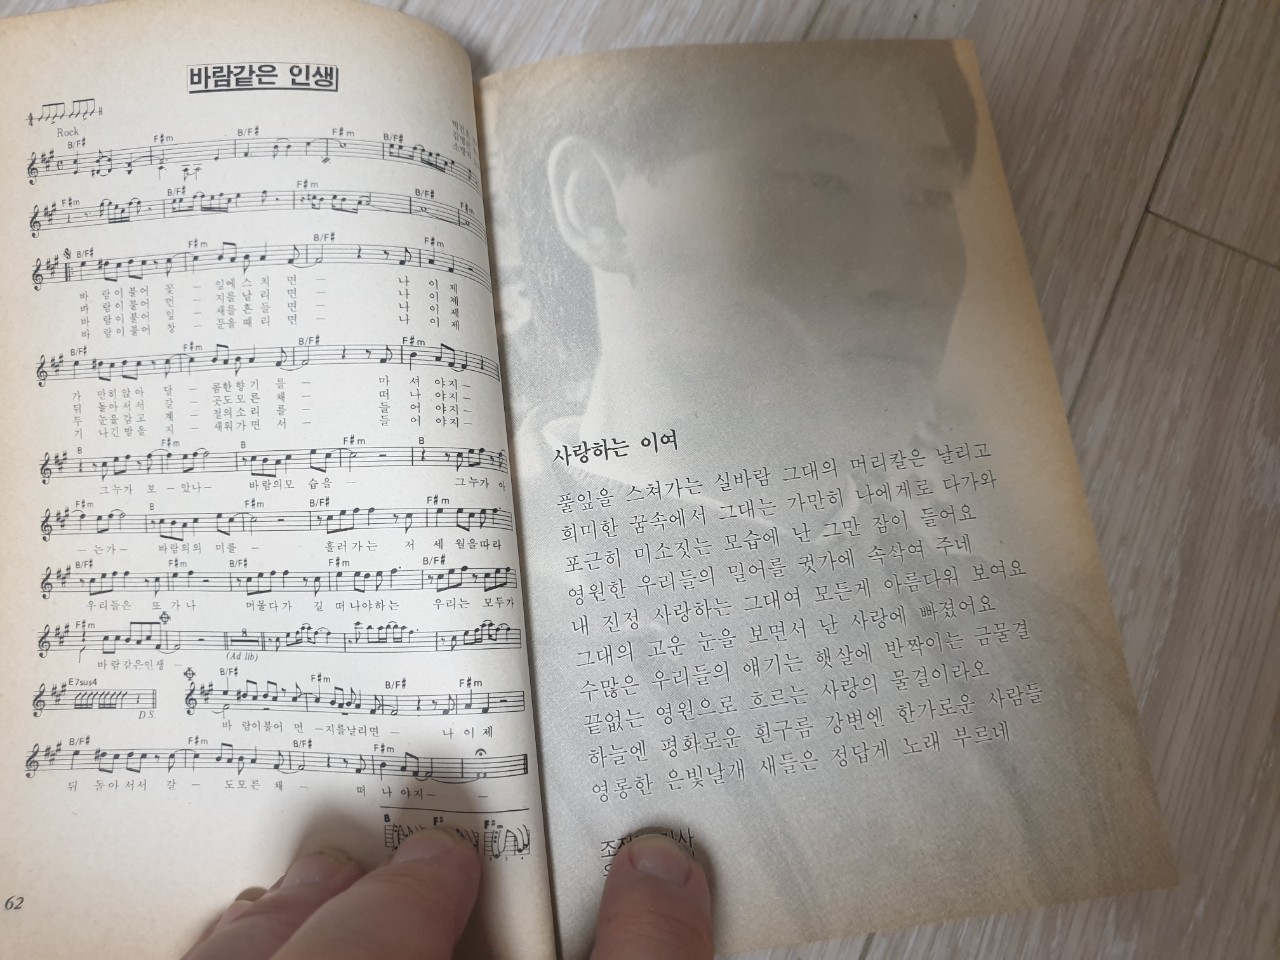 바람같은 인생
Rock
B/F♯ F♯m B/F♯ F♯m B/F♯
F♯m B/F♯ F♯m B/F♯ F♯m
B/F♯ F♯m B/F♯ F♯m
바 람이불어 꽃 — 잎에스 치 면 — 나 이 제
바 람이불어 먼 — 지를날 리 면 — 나 이 제
바 람이불어 잎 — 새를흔 들 면 — 나 이 제
바 람이불어 창 — 문을때 리 면 — 나 이 제
B/F♯ F♯m B/F♯ F♯m
가 만히앉아 달 — 콤한향 기 를 — 마 셔 야지—
뒤 돌아서서 갈 — 곳도모 른 채 — 떠 나 야지—
두 눈을감고 계 — 절의소 리 를 — 들 어 야지—
기 나긴밤을 지 — 새워가 면 서 — 들 어 야지—
B F♯m B F♯m B
그누가 보 —았나— 바람의모 습을 — 그누가 아
F♯m B F♯m B
—는가— 바람의의 미를 — 흘러가는 저 세 월을따라
B/F♯ F♯m B/F♯ F♯m B/F♯
우리들은 또 가나 머물다가 길 떠나야하는 우리는 모두가
F♯m
바람같은인생 —
(Ad lib)
E7sus4 B/F♯ F♯m B/F♯ F♯m
D.S.
바 람이불어 먼 —지를날리면 — 나 이 제
B/F♯ F♯m B/F♯ F♯m
뒤 돌아서서 갈 — 도모른 채 — 떠 나 야지— —
B F♯ F♯m
62
사랑하는 이여
풀잎을 스쳐가는 실바람 그대의 머리칼은 날리고
희미한 꿈속에서 그대는 가만히 나에게로 다가와
포근히 미소짓는 모습에 난 그만 잠이 들어요
영원한 우리들의 밀어를 귓가에 속삭여 주네
내 진정 사랑하는 그대여 모든게 아름다워 보여요
그대의 고운 눈을 보면서 난 사랑에 빠졌어요
수많은 우리들의 얘기는 햇살에 반짝이는 금물결
끝없는 영원으로 흐르는 사랑의 물결이라오
하늘엔 평화로운 흰구름 강변엔 한가로운 사람들
영롱한 은빛날개 새들은 정답게 노래 부르네